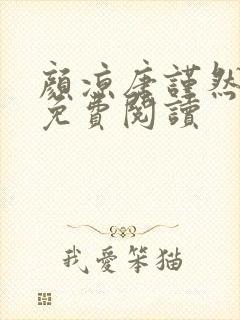 顏涼唐謹然
免費閱讀
我愛笨猫